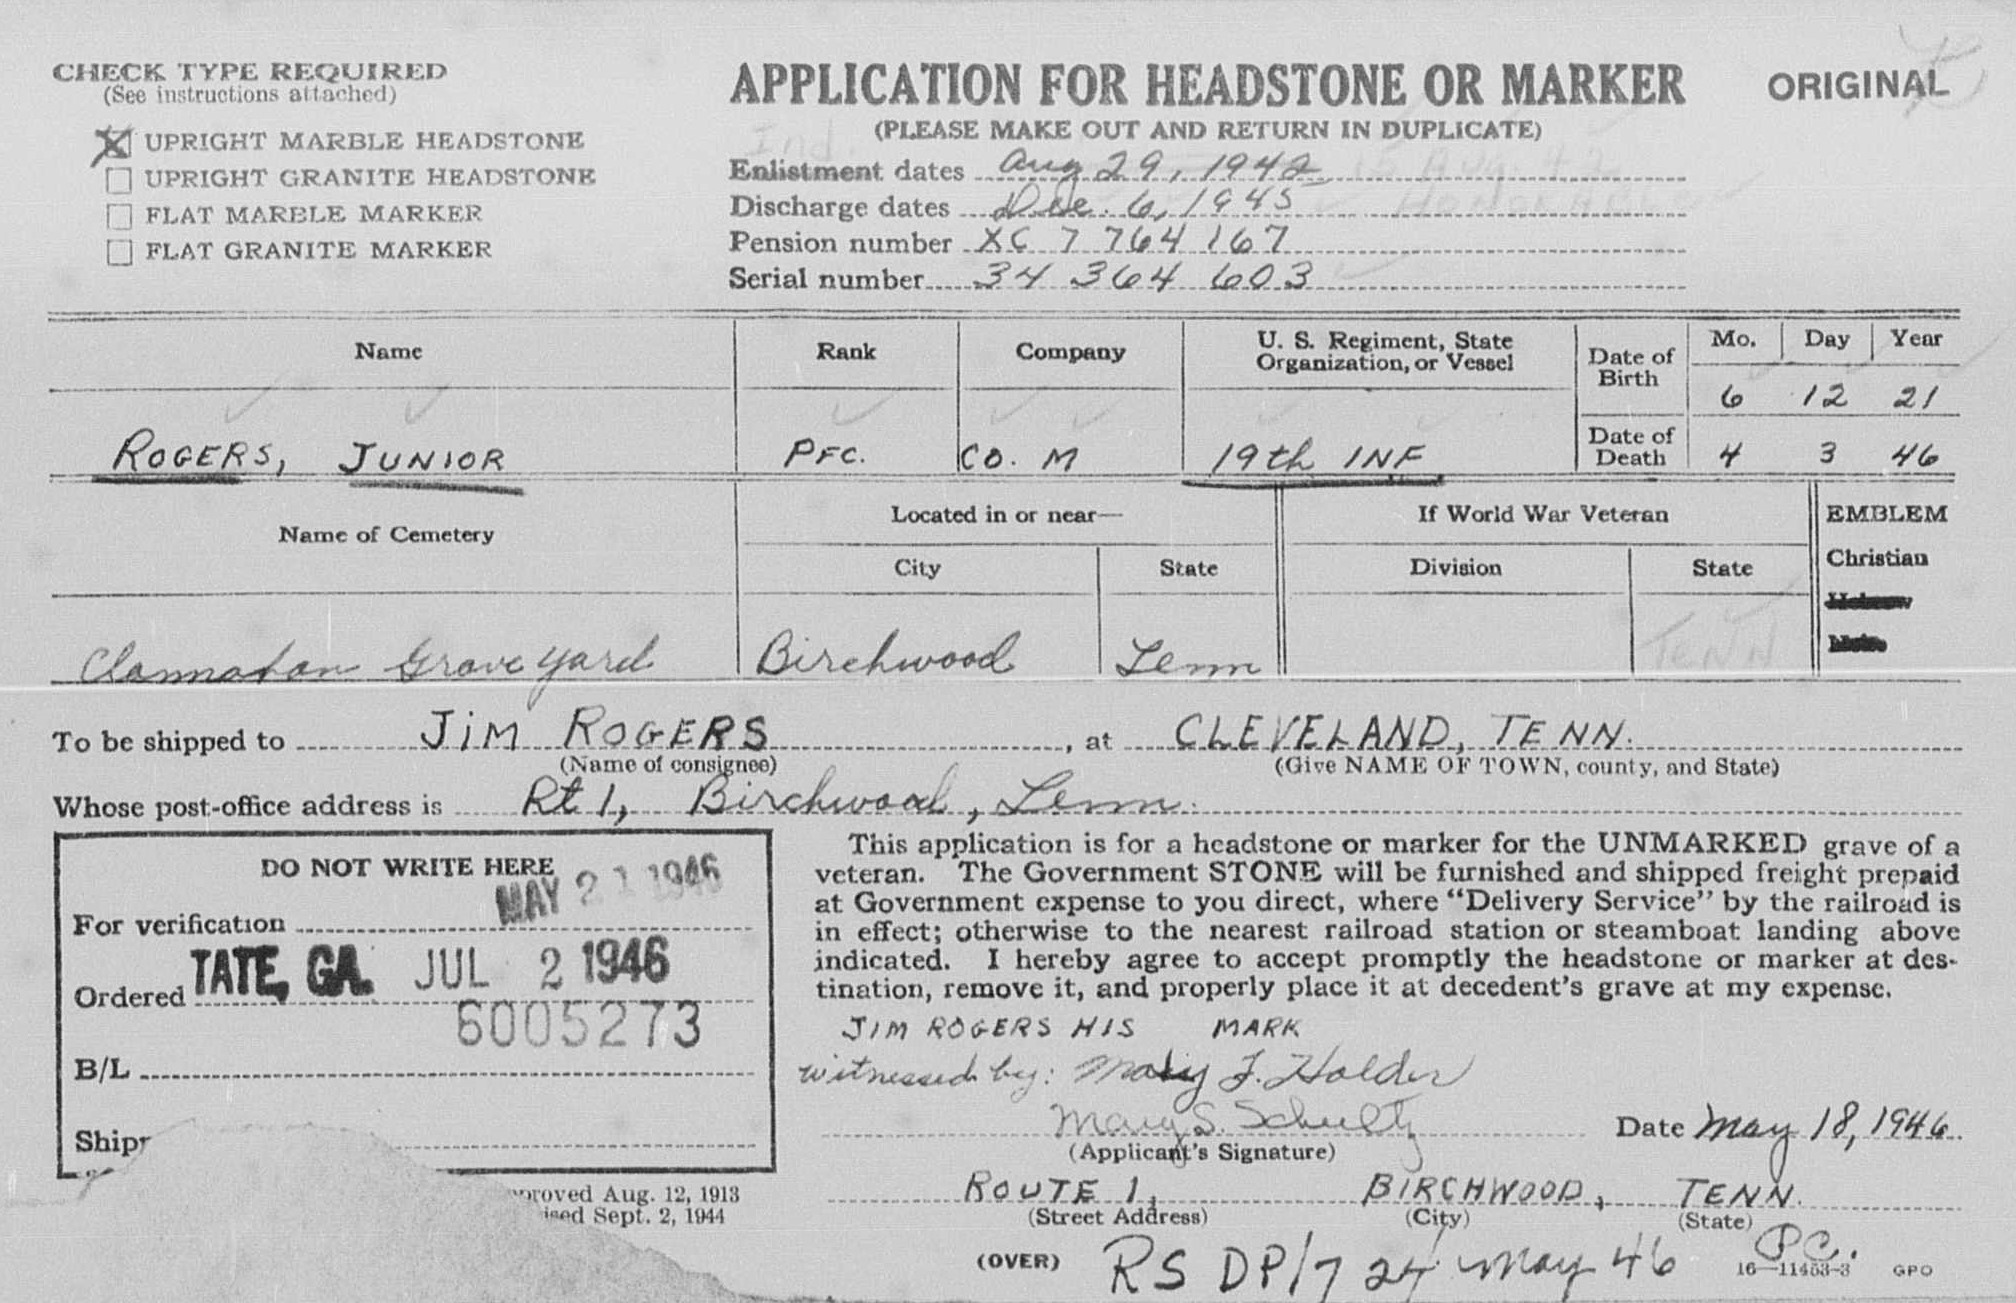 CHECK TYPE REQUIRED
(See instructions attached)
UPRIGHT MARBLE HEADSTONE
UPRIGHT GRANITE HEADSTONE
FLAT MARBLE MARKER
FLAT GRANITE MARKER
APPLICATION FOR HEADSTONE OR MARKER
(PLEASE MAKE OUT AND RETURN IN DUPLICATE)
ORIGINAL
Ind.
Enlistment dates Aug 29, 1942 15 AUG. 42
Discharge dates Dec. 6, 1945 HONORABLE
Pension number XC 7 764 167
Serial number 34 364 603
Name Rank Company U. S. Regiment, State Organization, or Vessel Date of Birth Mo. Day Year
6 12 21
ROGERS, JUNIOR PFC. CO. M 19th INF Date of Death 4 3 46
Name of Cemetery Located in or near— If World War Veteran EMBLEM
City State Division State Christian
Grave Yard Birchwood Tenn TENN
To be shipped to JIM ROGERS, at CLEVELAND, TENN.
(Name of consignee) (Give NAME OF TOWN, county, and State)
Whose post-office address is Rt 1, Birchwood, Tenn.
DO NOT WRITE HERE
MAY 21 1946
For verification
Ordered TATE, GA. JUL 2 1946
6005273
B/L
Ship
proved Aug. 12, 1913
ised Sept. 2, 1944
This application is for a headstone or marker for the UNMARKED grave of a
veteran. The Government STONE will be furnished and shipped freight prepaid
at Government expense to you direct, where “Delivery Service” by the railroad is
in effect; otherwise to the nearest railroad station or steamboat landing above
indicated. I hereby agree to accept promptly the headstone or marker at des-
tination, remove it, and properly place it at decedent's grave at my expense.
JIM ROGERS HIS MARK
witnessed by: Mary F. Holder
Mary S. Schultz Date May 18, 1946.
(Applicant's Signature)
ROUTE 1, BIRCHWOOD, TENN.
(Street Address) (City) (State)
(OVER) RS DP/7 24 May 46 P.C.
16—11453-3 GPO